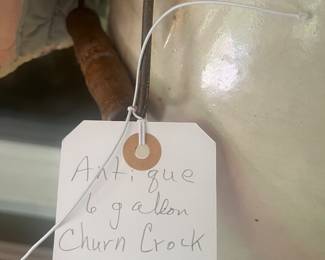 Antique
6 gallon
Churn Crock